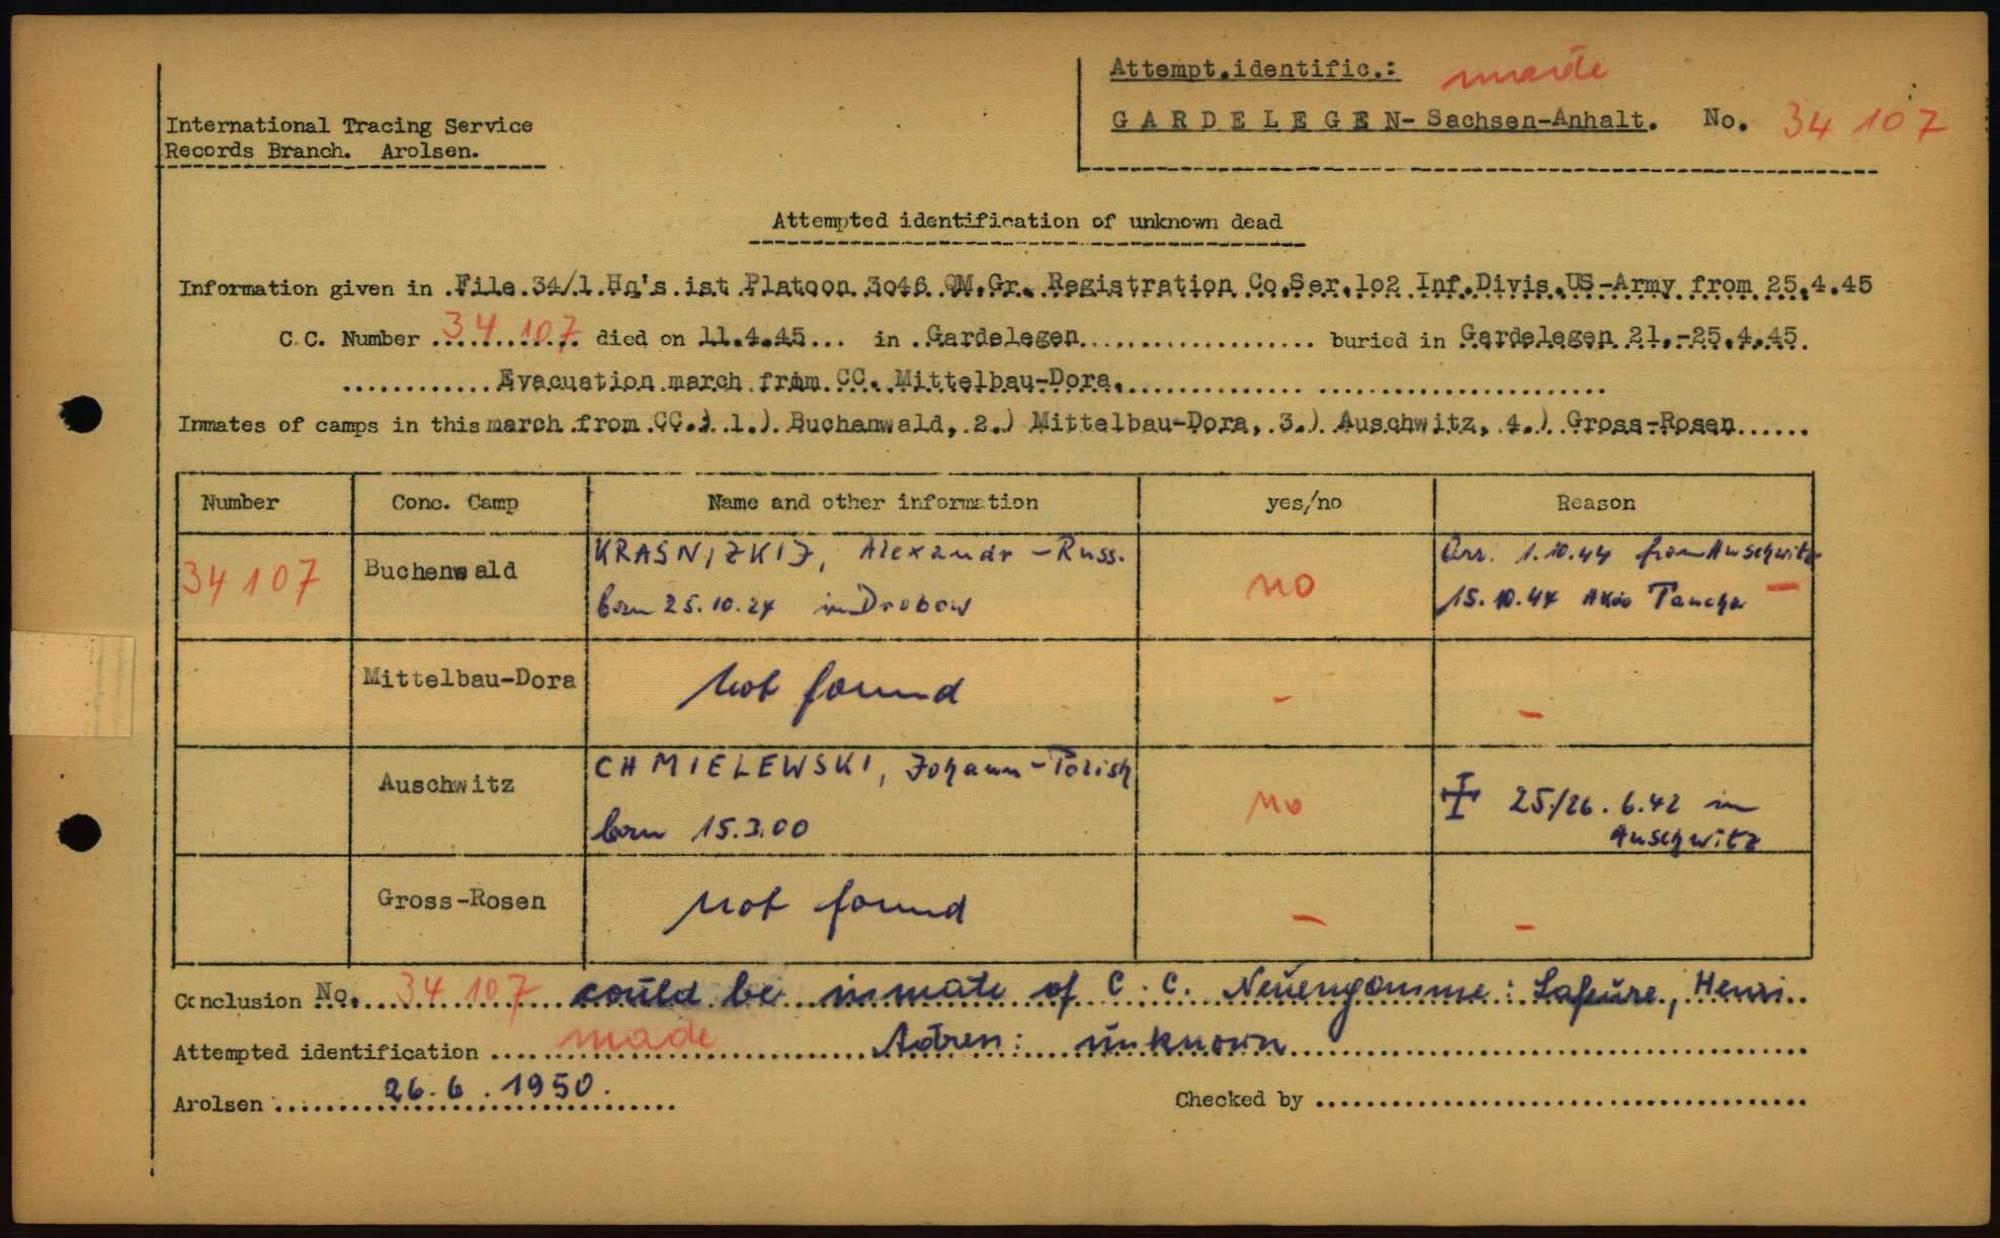 Attempt.identific.: made
GARDELEGEN-Sachsen-Anhalt. No. 34 107
International Tracing Service
Records Branch. Arolsen.
Attempted identification of unknown dead
Information given in File 34/1 Hq's ist Platoon 3o46 QM.Gr. Registration Co.Ser.1o2 Inf.Divis.US-Army from 25.4.45
C.C. Number 34 107 died on 11.4.45... in .Gardelegen.................... buried in Gardelegen 21.-25.4.45.
............Evacuation march from CC. Mittelbau-Dora...............................................
Inmates of camps in this march from CC.) 1.) Buchanwald, 2.) Mittelbau-Dora, 3.) Auschwitz, 4.) Gross-Rosen......
Number Conc. Camp Name and other information yes/no Reason
34 107 Buchenwald KRASNIZKIJ, Alexandr - Russ. no Arr. 1.10.44 from Auschwitz
born 25.10.24 in Drobow 15.10.44 Akdo Taucha -
Mittelbau-Dora Not found - -
Auschwitz CHMIELEWSKI, Johann - Polish no 25./26.6.42 in
born 15.3.00 Auschwitz
Gross-Rosen not found - -
Conclusion No. 34 107 could be inmate of C.C. Neuengamme: Lafeure, Henri
Attempted identification made Adress: unknown
Arolsen 26.6.1950. Checked by